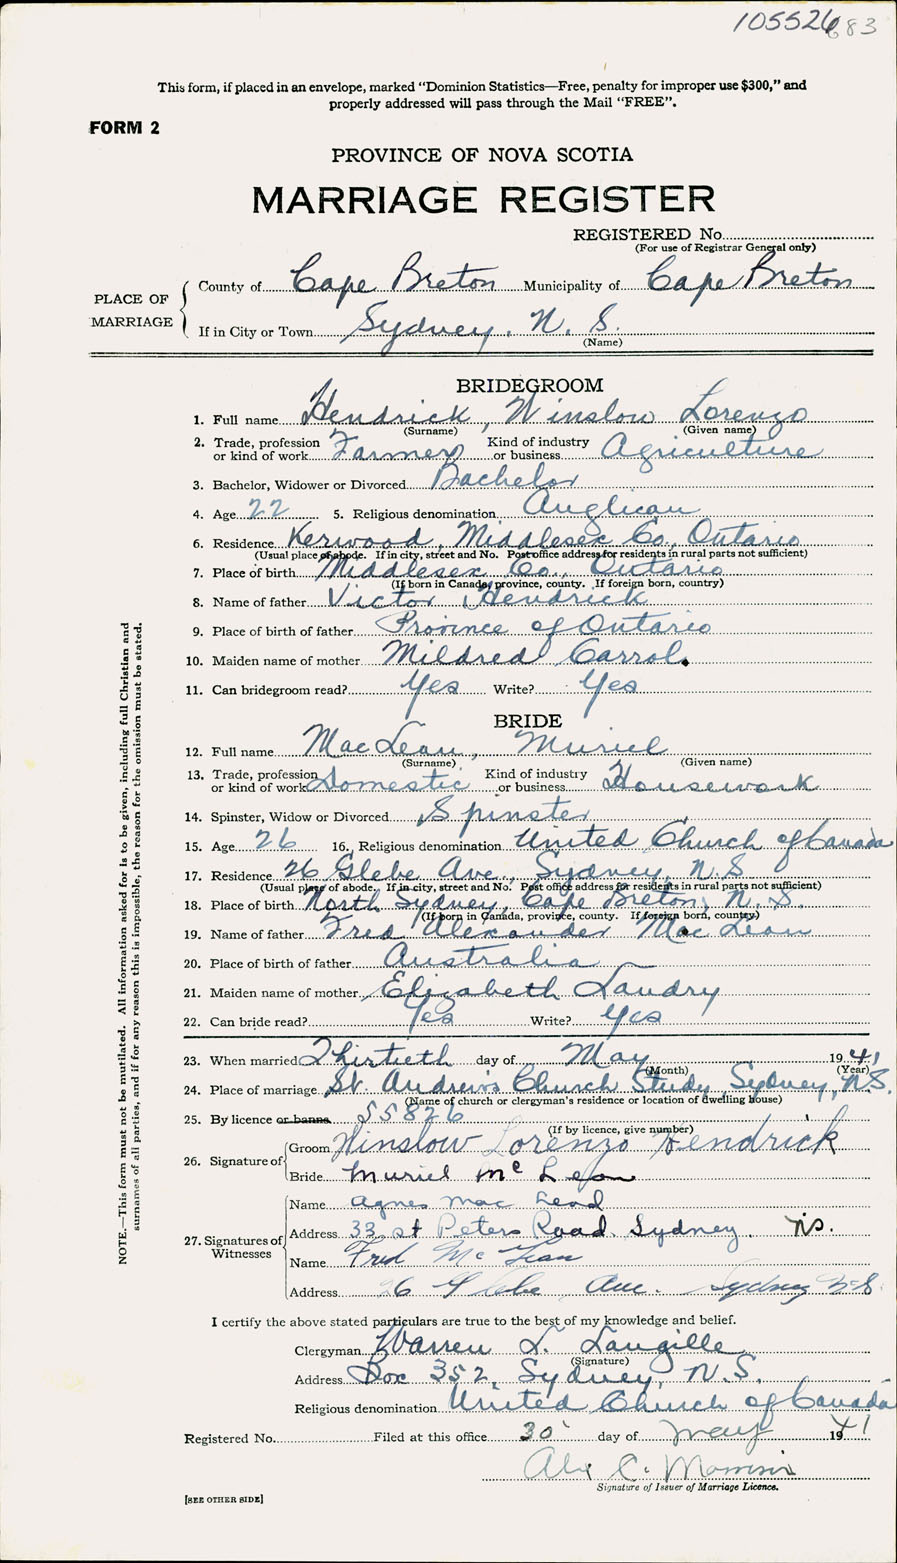 105526 683
This form, if placed in an envelope, marked "Dominion Statistics—Free, penalty for improper use $300," and
properly addressed will pass through the Mail "FREE".
FORM 2
PROVINCE OF NOVA SCOTIA
MARRIAGE REGISTER
REGISTERED No.
(For use of Registrar General only)
PLACE OF MARRIAGE
County of Cape Breton Municipality of Cape Breton
If in City or Town Sydney, N. S.
(Name)
BRIDEGROOM
1. Full name Hendrick, Winslow Lorenzo
(Surname) (Given name)
2. Trade, profession or kind of work Farmer Kind of industry or business Agriculture
3. Bachelor, Widower or Divorced Bachelor
4. Age 22 5. Religious denomination Anglican
6. Residence Kerwood, Middlesex Co., Ontario
(Usual place of abode. If in city, street and No. Post office address for residents in rural parts not sufficient)
7. Place of birth Middlesex Co., Ontario
(If born in Canada, province, county. If foreign born, country)
8. Name of father Victor Hendrick
9. Place of birth of father Province of Ontario
10. Maiden name of mother Mildred Carrol
11. Can bridegroom read? Yes Write? Yes
BRIDE
12. Full name MacLean, Muriel
(Surname) (Given name)
13. Trade, profession or kind of work Domestic Kind of industry or business Housework
14. Spinster, Widow or Divorced Spinster
15. Age 26 16. Religious denomination United Church of Canada
17. Residence 26 Glebe Ave., Sydney, N.S
(Usual place of abode. If in city, street and No. Post office address for residents in rural parts not sufficient)
18. Place of birth North Sydney, Cape Breton, N. S.
(If born in Canada, province, county. If foreign born, country)
19. Name of father Fred Alexander MacLean
20. Place of birth of father Australia
21. Maiden name of mother Elizabeth Landry
22. Can bride read? Yes Write? Yes
23. When married Thirtieth day of May 1941
(Month) (Year)
24. Place of marriage St. Andrew's Church Study, Sydney, N.S.
(Name of church or clergyman's residence or location of dwelling house)
25. By licence or banns 55826
(If by licence, give number)
26. Signature of
Groom Winslow Lorenzo Hendrick
Bride Muriel McLean
27. Signatures of Witnesses
Name Agnes MacLeod
Address 33 St Peters Road Sydney. N.S.
Name Fred McLean
Address 26 Glebe Ave. Sydney N.S.
I certify the above stated particulars are true to the best of my knowledge and belief.
Clergyman Warren L. Langille
(Signature)
Address Box 352, Sydney, N.S.
Religious denomination United Church of Canada
Registered No. Filed at this office 30 day of May 1941
Alex C.
Signature of Issuer of Marriage Licence.
[SEE OTHER SIDE]
NOTE.—This form must not be mutilated. All information asked for is to be given, including full Christian and
surnames of all parties, and if for any reason this is impossible, the reason for the omission must be stated.